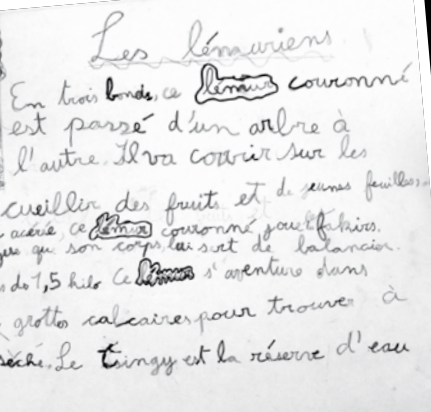 Les lémuriens
En trois bonds, ce lémur couronné
est passé d'un arbre à
l'autre. Il va courir sur les
cueillir des fruits et de jeunes feuilles.
acérié, ce lémur couronné joue fakirs.
qu son corps lui sert de balancier.
de 1,5 kilo Ce lémur s'aventure dans
grottes calcaires pour trouver à
séché. Le tsingy est la réserve d'eau